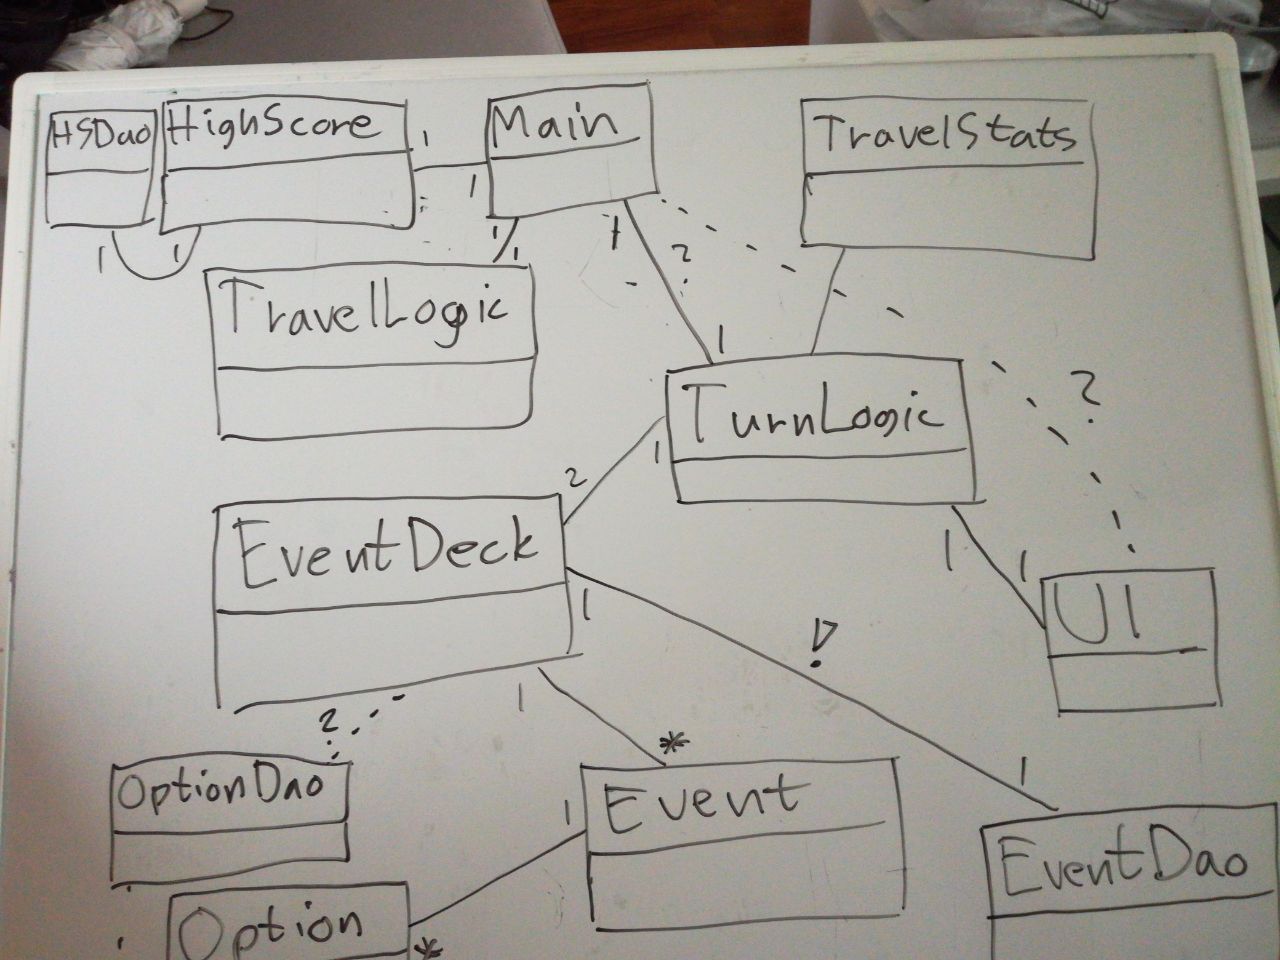 HSDao
HighScore
1
1
Main
TravelStats
1
1
1
1
TravelLogic
1
?
1
TurnLogic
?
1
2
EventDeck
1
1
1
UI
!?
1
?
*
1
OptionDao
1
Event
EventDao
Option
*